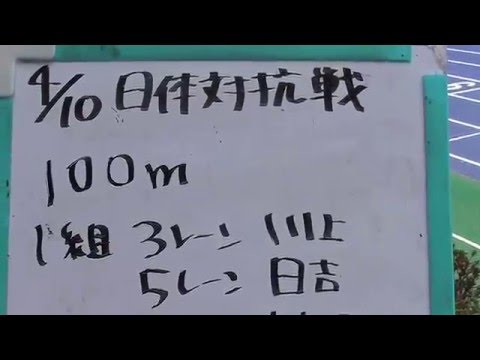 4/10 日体対抗戦
100m
1組 3レーン 川上
5レーン 日吉